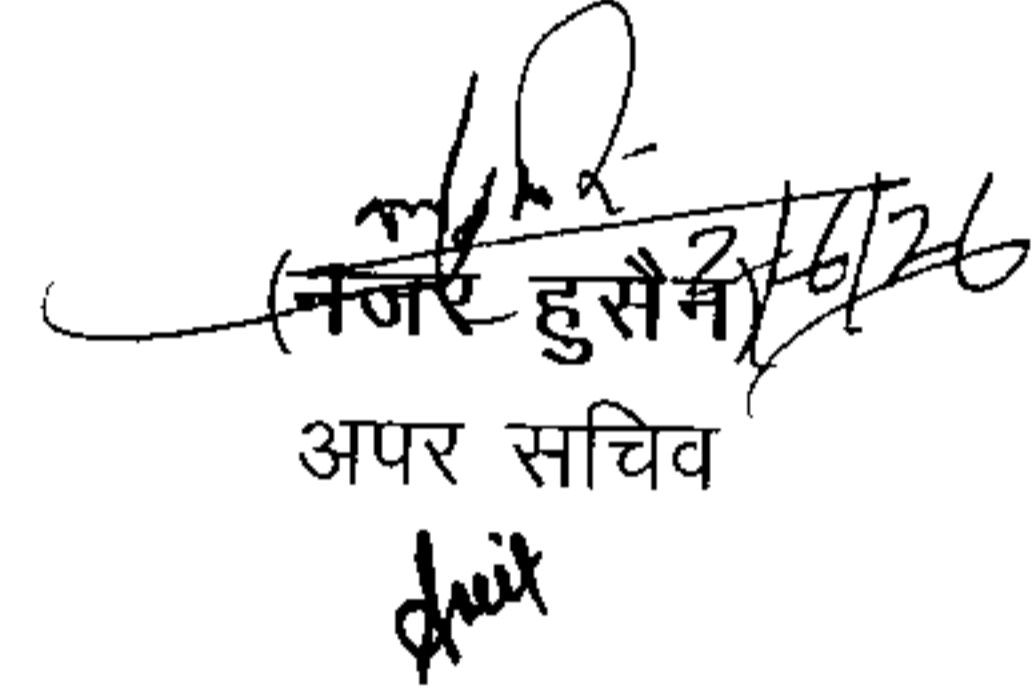 2/6/26
(नजर हुसैन)
अपर सचिव